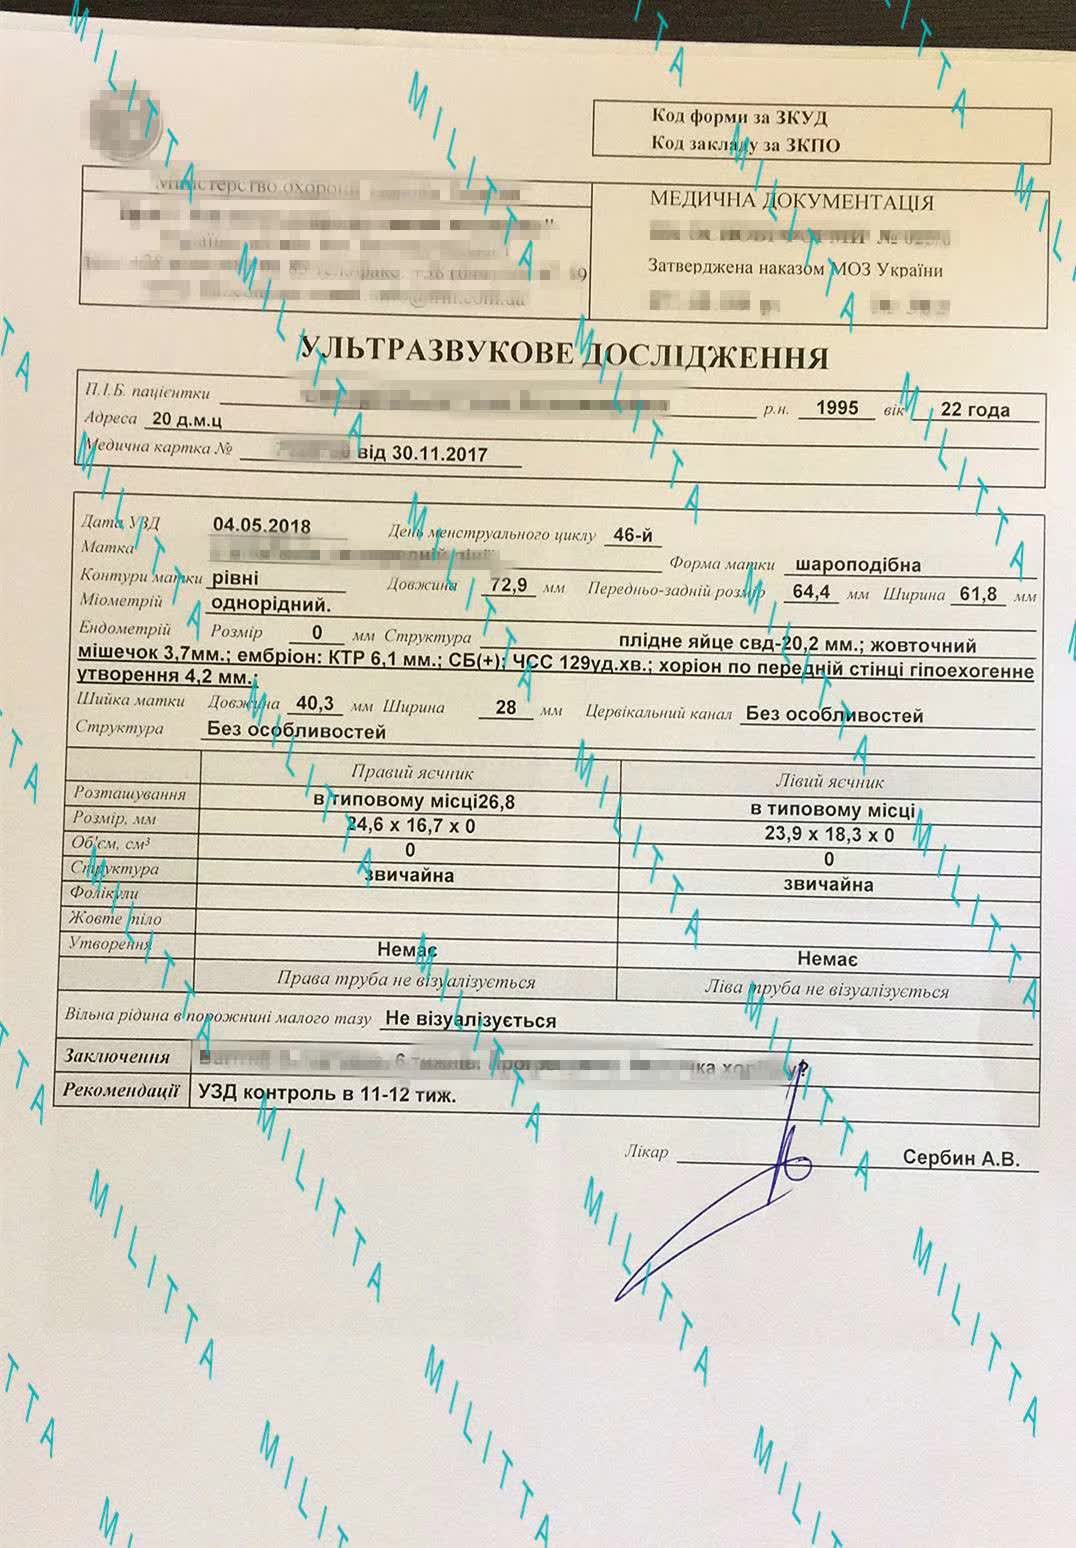 Код форми за ЗКУД
Код закладу за ЗКПО
Міністерство охорони
МЕДИЧНА ДОКУМЕНТАЦІЯ
Затверджена наказом МОЗ України
УЛЬТРАЗВУКОВЕ ДОСЛІДЖЕННЯ
П.І.Б. пацієнтки р.н. 1995 вік 22 года
Адреса 20 д.м.ц
Медична картка № від 30.11.2017
Дата УЗД 04.05.2018 День менструального циклу 46-й
Матка Форма матки шароподібна
Контури матки рівні Довжина 72,9 мм Передньо-задній розмір 64,4 мм Ширина 61,8 мм
Міометрій однорідний.
Ендометрій Розмір 0 мм Структура плідне яйце свд-20,2 мм.; жовточний
мішечок 3,7мм.; ембріон: КТР 6,1 мм.; СБ(+); ЧСС 129уд.хв.; хоріон по передній стінці гіпоехогенне
утворення 4,2 мм.;
Шийка матки Довжина 40,3 мм Ширина 28 мм Цервікальний канал Без особливостей
Структура Без особливостей
Правий яєчник Лівий яєчник
Розташування в типовому місці26,8 в типовому місці
Розмір, мм 24,6 х 16,7 х 0 23,9 х 18,3 х 0
Об'єм, см³ 0 0
Структура звичайна звичайна
Фолікули
Жовте тіло
Утворення Немає Немає
Права труба не візуалізується Ліва труба не візуалізується
Вільна рідина в порожнині малого тазу Не візуалізується
Заключення
Рекомендації УЗД контроль в 11-12 тиж.
Лікар Сербин А.В.
MILITTA